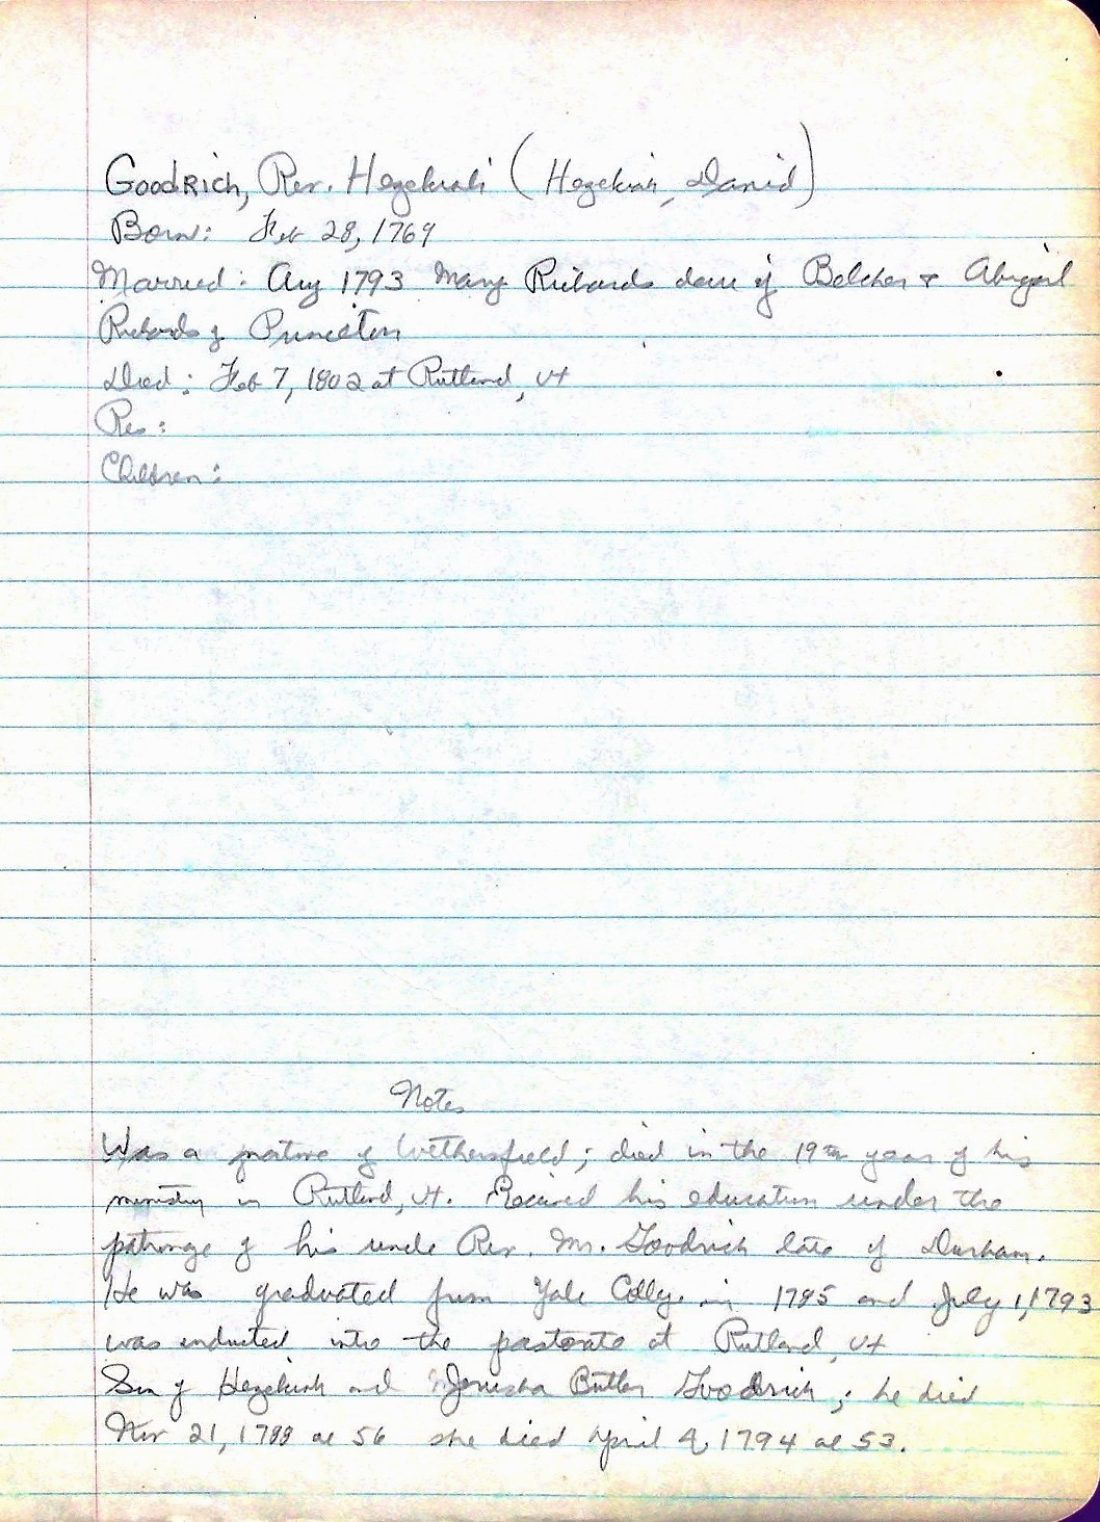 Goodrich, Rev. Hezekiah (Hezekiah, David)
Born: Feb 28, 1769
Married: Aug 1793 Mary Richards dau of Belcher & Abigail
Richards of Princeton
Died: Feb 7, 1802 at Rutland, Vt
Res:
Children:
Notes
Was a native of Wethersfield; died in the 19th year of his
ministry in Rutland, Vt. Received his education under the
patronage of his uncle Rev. Mr. Goodrich late of Durham.
He was graduated from Yale Colleg. in 1785 and July 1, 1793
was inducted into the pastorate at Rutland, Vt
Son of Hezekiah and Jerusha Butler Goodrich; he died
Nov 21, 1788 ae 56 she died April 4, 1794 ae 53.